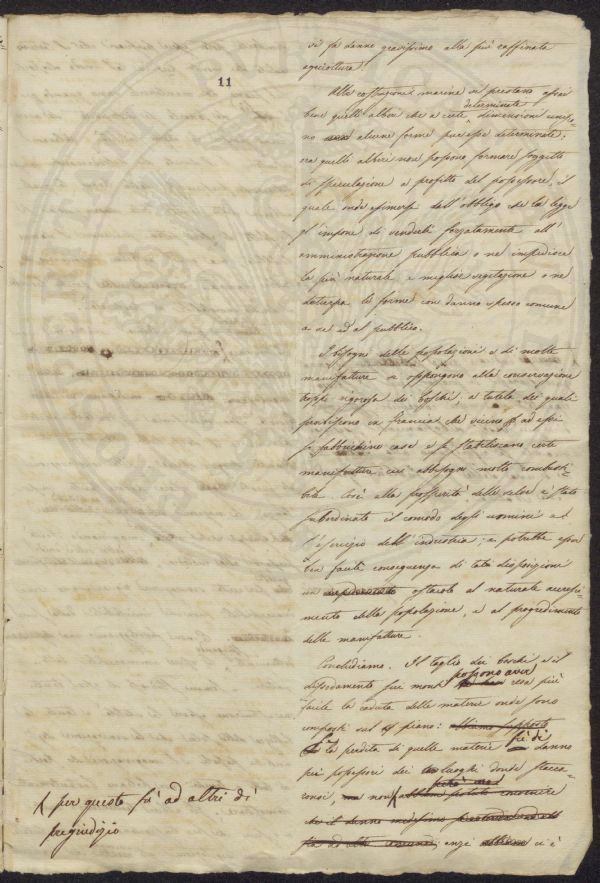 11
vi fa danno gravissimo alla più raffinata
agricoltura.
Alle costruzioni marine si prestano assai
bene quelli alberi che a certe determinate dimensioni unisco-
no alcune forme pur esse determinate;
ora quelli alberi non possono formare soggetto
di speculazione a profitto del possessore, il
quale onde esimersi dall'obbligo che la legge
gl'impone di venderli forzatamente all'
amministrazione pubblica o ne impedisce
la più naturale e miglior vegetazione o ne
deturpa le forme con danno spesso comune
a se ed al pubblico.
I bisogni delle popolazioni e di molte
manufatture si oppongono alla conservazione
troppo rigorosa dei boschi, a tutela dei quali
proibiscono in Francia che vicino ad essi
si fabbrichino case e si stabiliscano certe
manufatture cui abbisogni molto combusti-
bile. Così alla prosperità delle selve è stato
subordinato il comodo degli uomini ed
l'esercizio dell'industria; e potrebbe essere
ben facile conseguenza di tale disposizione
un ostacolo al naturale accresci-
mento della popolazione, e al progredimento
delle manufatture.
Concludiamo. Il taglio dei boschi e il
dissodamento sui monti possono aver resa più
facile la caduta delle materie onde sono
composti sul piano:
la perdita di quelle materie sia di danno
pei possessori dei luoghi donde stacca-
ronsi, non però mai abbiam potuto convenire
che il danno medesimo
anzi ci è
per questo fu ad altri di
pregiudizio